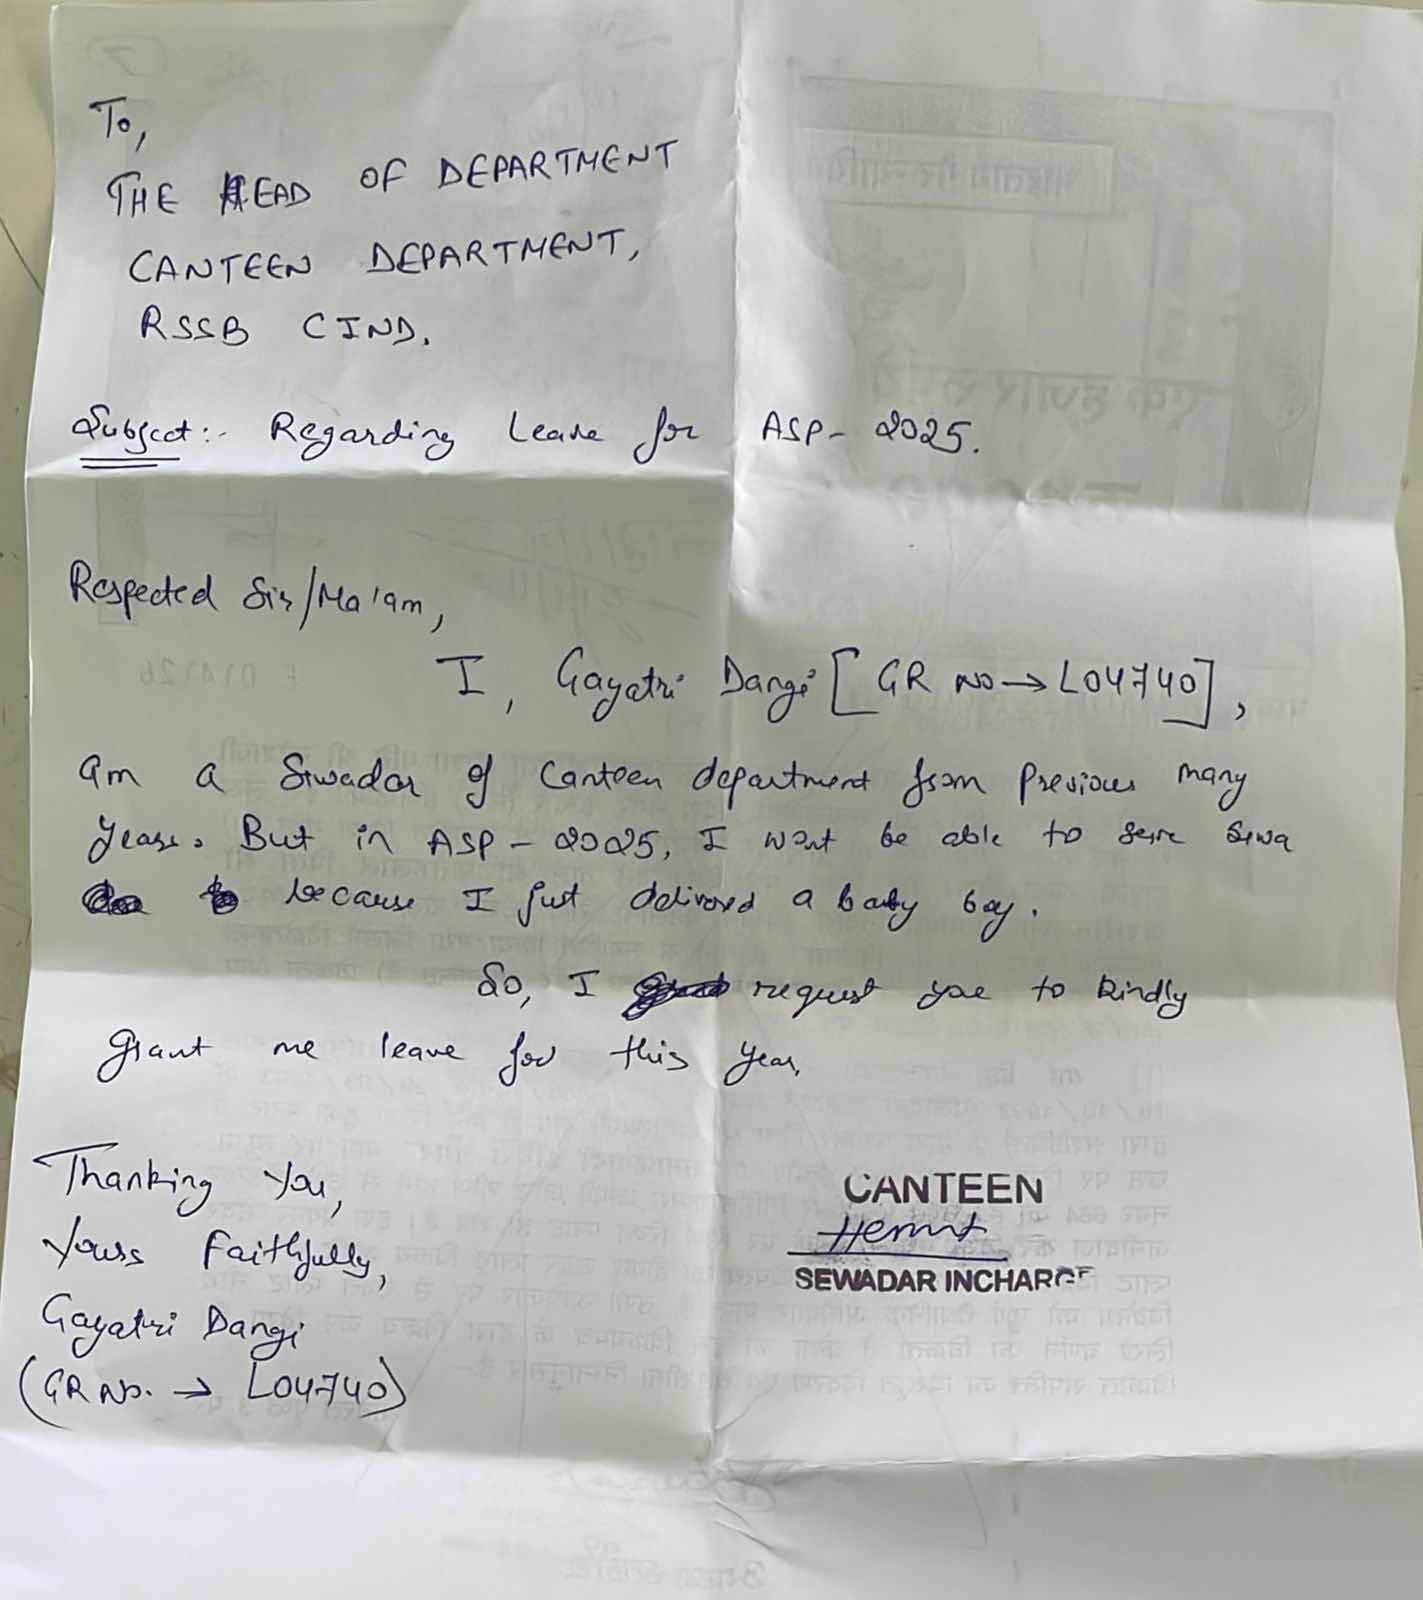 To,
THE HEAD OF DEPARTMENT
CANTEEN DEPARTMENT,
RSSB CIND.
Subject:- Regarding Leave for ASP- 2025.
Respected Sir/Ma'am,
I, Gayatri Dangi [GR NO → L04740],
am a Sewadar of Canteen department from Previous many
years. But in ASP - 2025, I wont be able to serve Sewa
because I just delivered a baby boy.
So, I request you to kindly
grant me leave for this year.
Thanking You,
Yours Faithfully,
Gayatri Dangi
(GR No. → L04740)
CANTEEN
SEWADAR INCHARGE